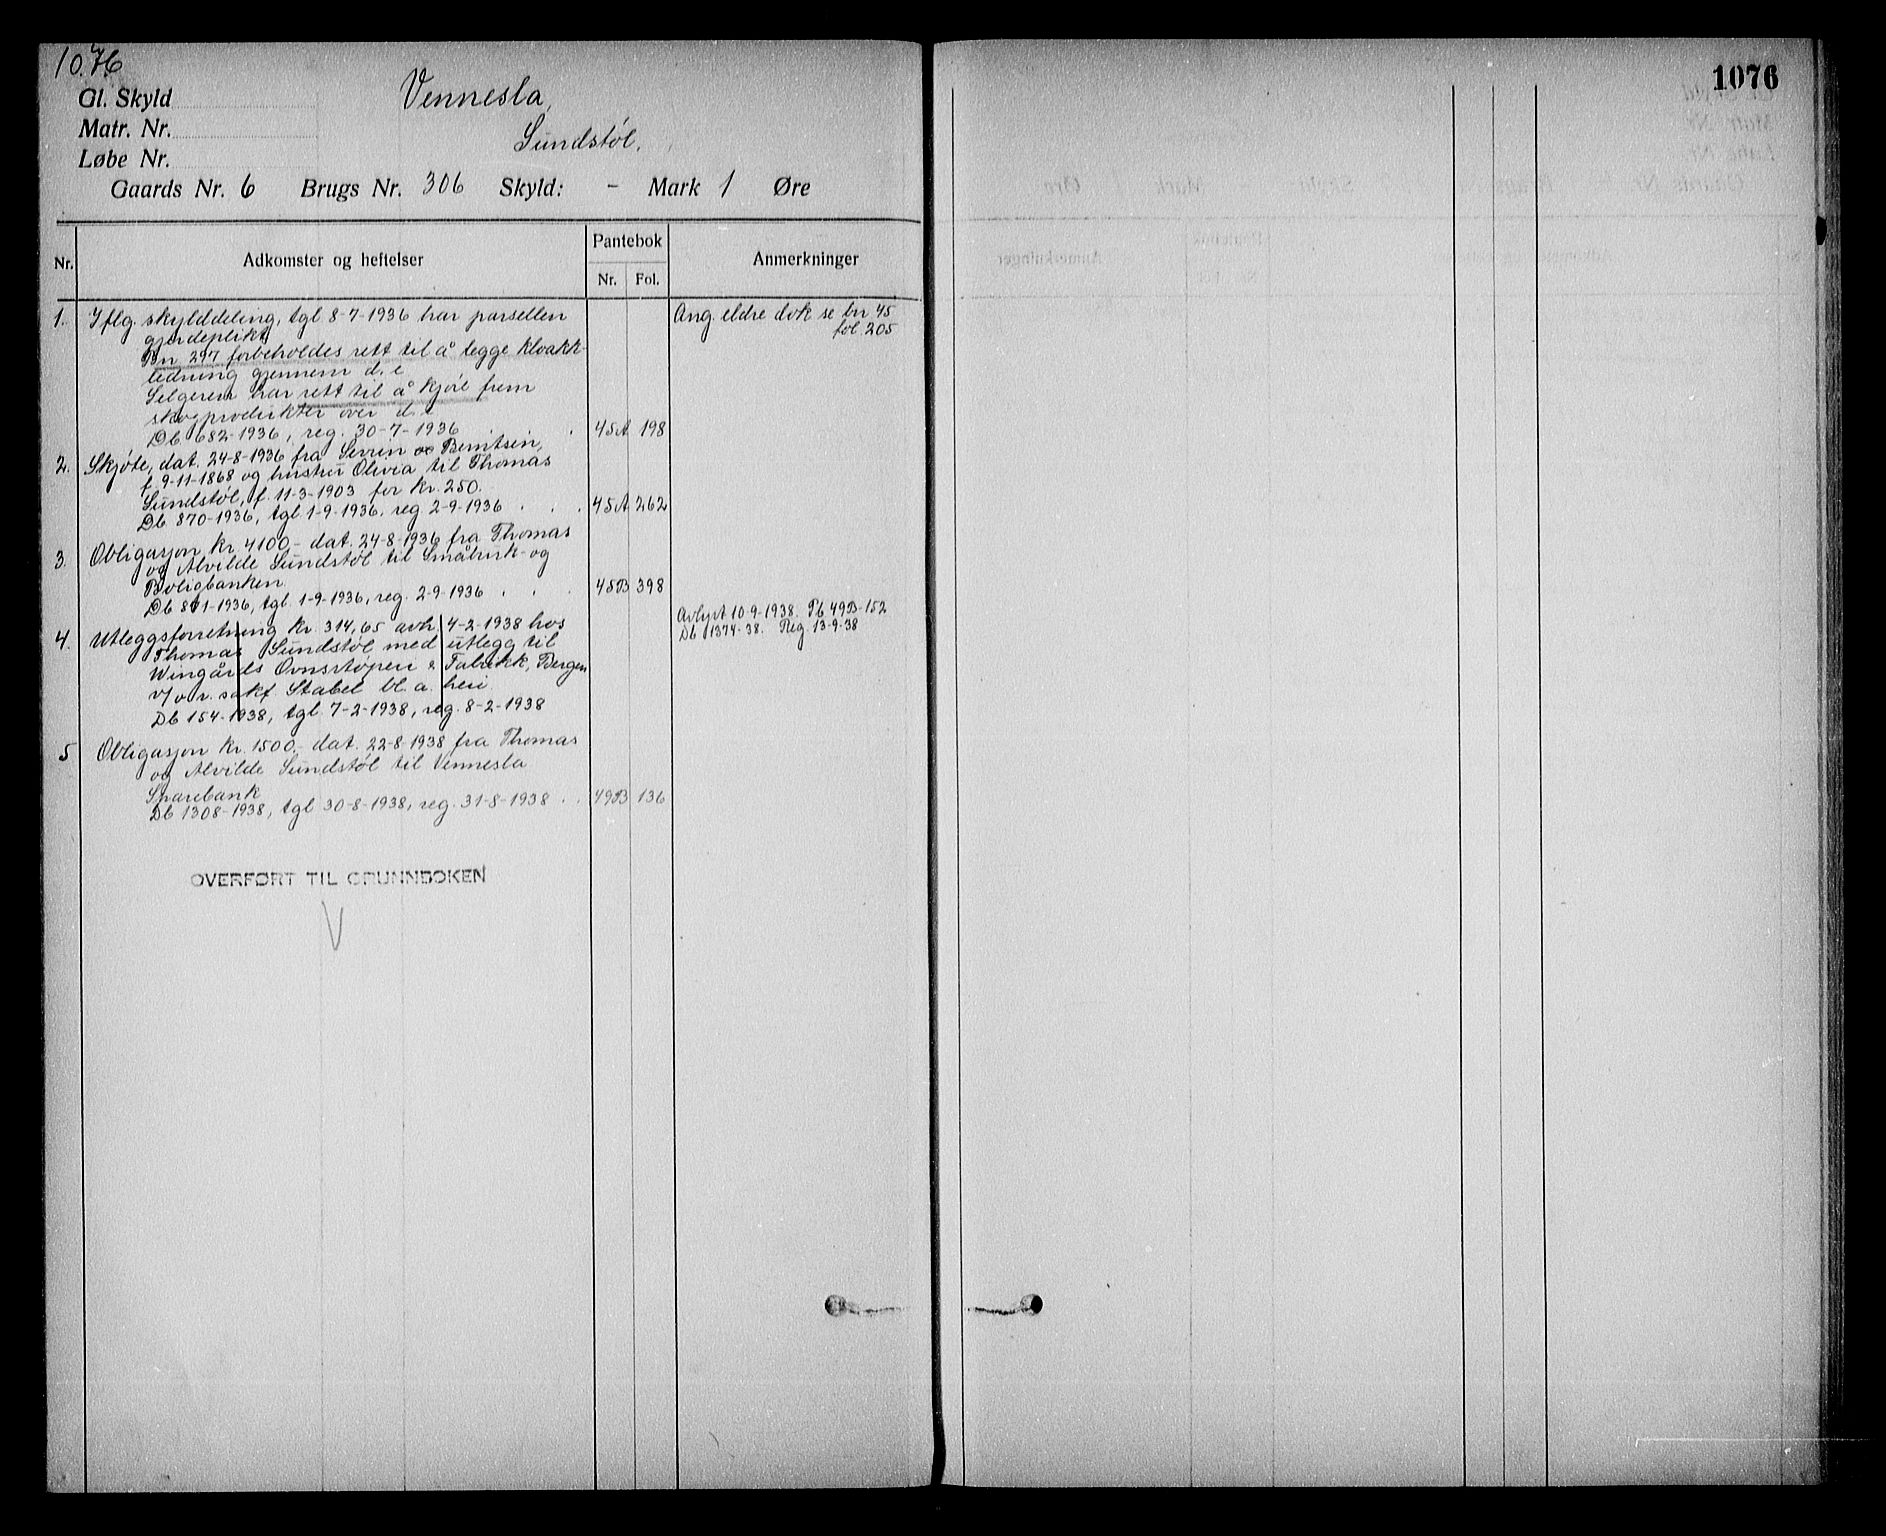 1076
1076
Gl. Skyld
Vennesla,
Matr. Nr.
Sundstøl.
Løbe Nr.
Gaards Nr. 6 Brugs Nr. 306 Skyld: - Mark 1 Øre
Nr. Adkomster og heftelser Pantebok Anmerkninger
Nr. Fol.
1. Iflg. skylddeling, tgl 8-7-1936 har parsellen Ang. eldre dok se bn 45
gjerdeplikt fol. 205
Bn 297 forbeholdes rett til å legge kloakk-
ledning gjennem d. e
Selgeren har rett til å kjøre frem
skogprodukter over d. e
Db 682-1936, reg. 30-7-1936 . . 45A 198
2. Skjøte, dat. 24-8-1936 fra Severin Berntsen,
f. 9-11-1868 og hustru Olivia til Thomas
Sundstøl, f. 11-3-1903 for kr. 250.
Db 870-1936, tgl 1-9-1936, reg 2-9-1936 . . . 45A 262
3. Obligasjon kr. 4100,- dat. 24-8-1936 fra Thomas
og Alvilde Sundstøl til Småbruk- og
Boligbanken
Db 871-1936, tgl. 1-9-1936, reg. 2-9-1936 . . . 45B 398
4. Utleggsforretning kr. 314,65 avh. 4-2-1938 hos Avlyst 10-9-1938. Pb 49B-152
Thomas Sundstøl med utlegg til Db 1374-38. Reg. 13-9-38
Wingårds Ovnsstøperi & Fabrikk, Bergen
v/o.r. sakf Stabel bl. a. heri
Db 154-1938, tgl 7-2-1938, reg. 8-2-1938
5 Obligasjon kr. 1500,- dat. 22-8-1938 fra Thomas
og Alvilde Sundstøl til Vennesla
Sparebank
Db 1308-1938, tgl 30-8-1938, reg. 31-8-1938 . . 49B 136
OVERFØRT TIL GRUNNBOKEN
V